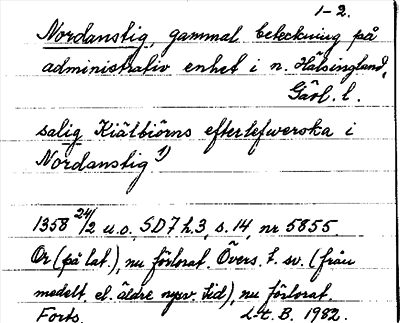 1-2.
Nordanstig, gammal beteckning på
administrativ enhet i n. Hälsingland,
Gävl. l.
salig Kiälbiörns efterlefwerska i
Nordanstig 1)
1358 24/2 u.o. SD7 h.3, s.14, nr 5855.
Or (på lat.), nu förlorat. Övers. t. sv. (från
medelt. el. äldre nysv. tid), nu förlorat.
Forts. L-t. B. 1982.